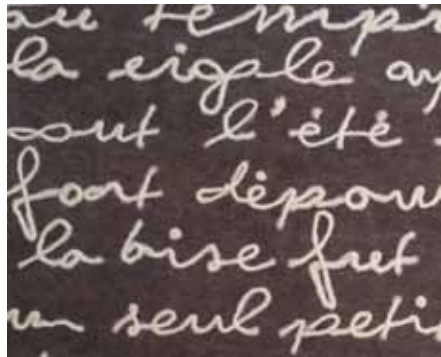 au temps
la cigale ay
out l'été
foot dépour
la bise fut
un seul peti